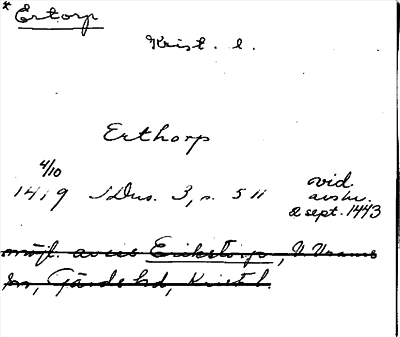 * Ertorp
Krist. l.
Erthorp
4/10
1419 SDns. 3, s. 511 vid.
avskr.
2 sept. 1443
möjl. avses Erikstorp, N. Vrams
sn, Gärds hd, Krist l.